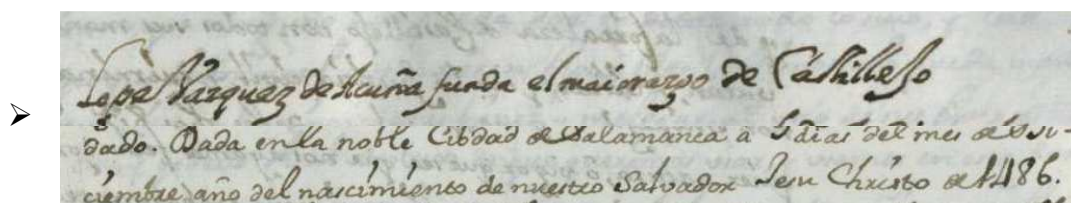 Lope Vazquez de Acuña funda el maiorazgo de Castillejo
dado. Dada en la noble Cibdad de Salamanca a 5 dias del mes de Di-
ciembre, año del nascimiento de nuestro Salvador Jesu Christo de 1486.